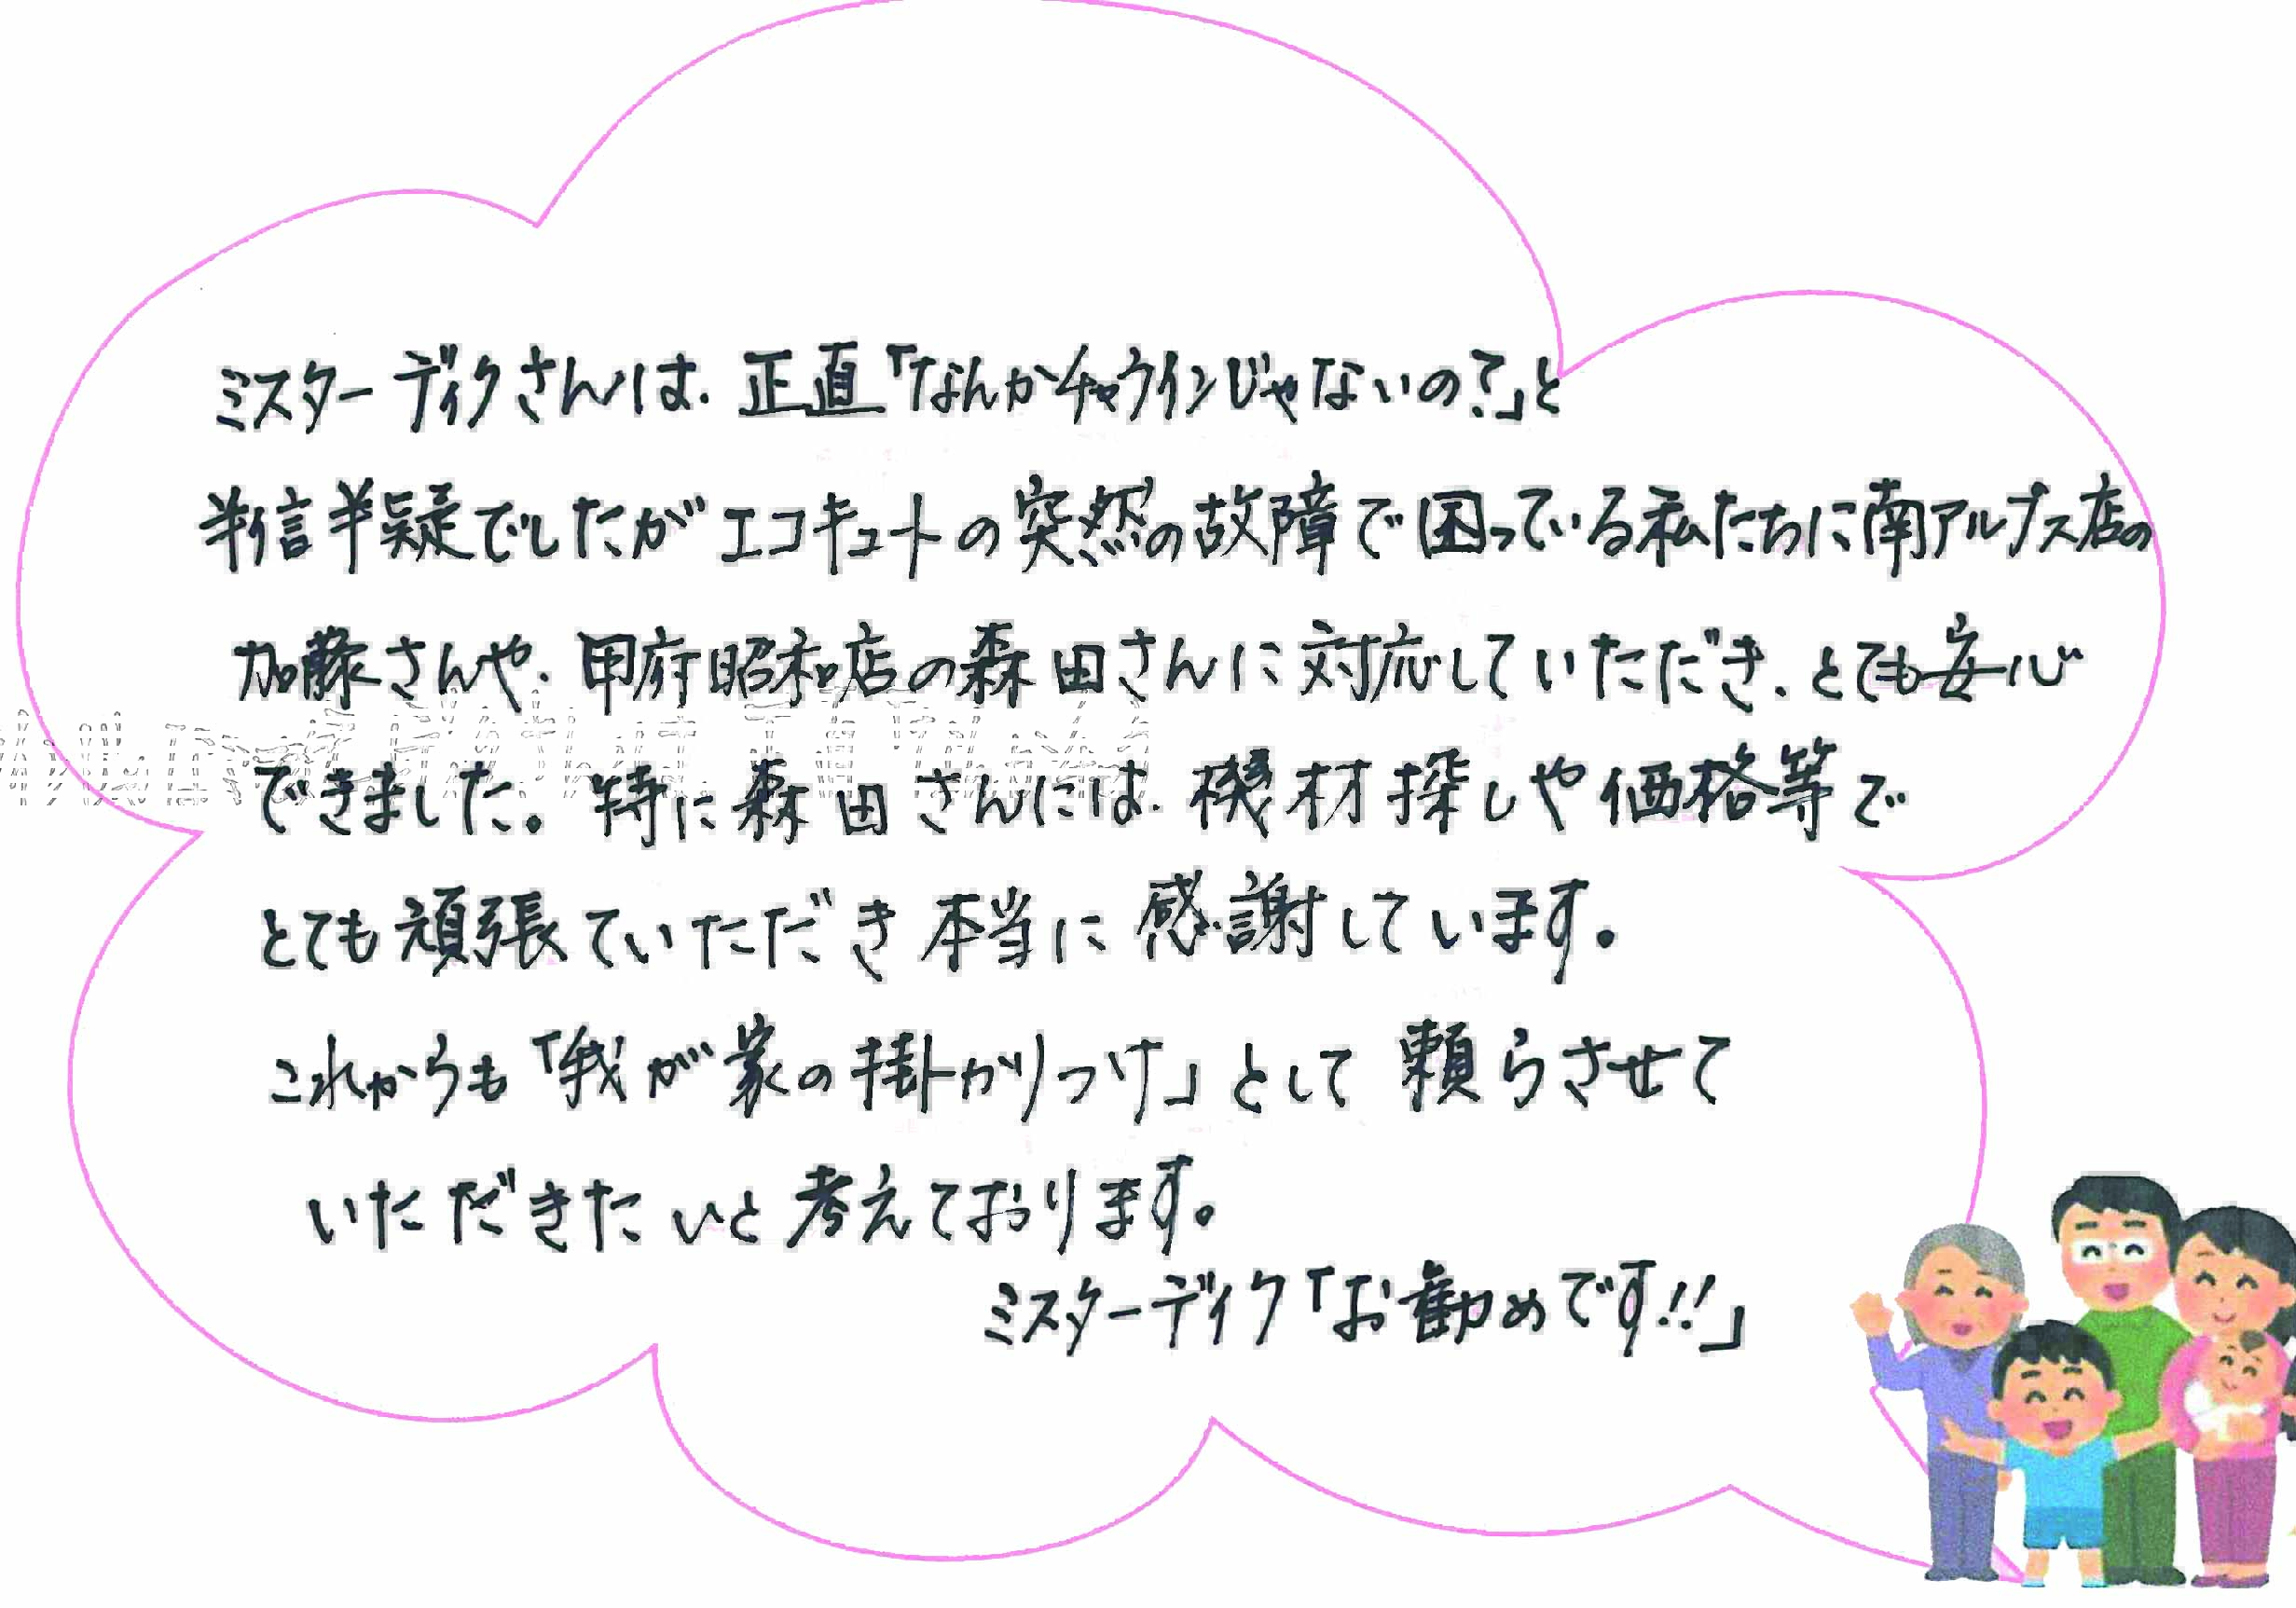 ミスターデイクさんは、正直「なんかチャラインじゃないの?」と
半信半疑でしたがエコキュートの突然の故障で困っている私たちに南アルプス店の
加藤さんや、甲府昭和店の森田さんに対応していただき、とても安心
できました。特に森田さんには、機材探しや価格等で
とても頑張ていただき本当に感謝しています。
これからも「我が家の掛かりつけ」として頼らさせて
いただきたいと考えております。
ミスターデイク「お勧めです!!」